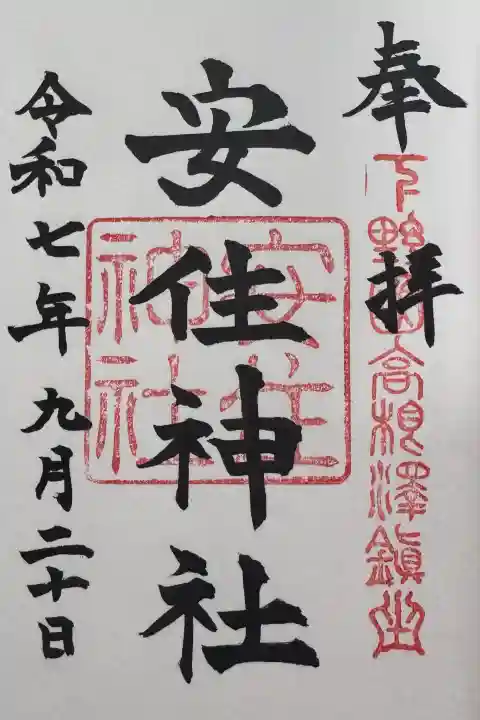 奉拝
下野国高根澤鎮坐
安住神社
安住
神社
令和七年九月二十日